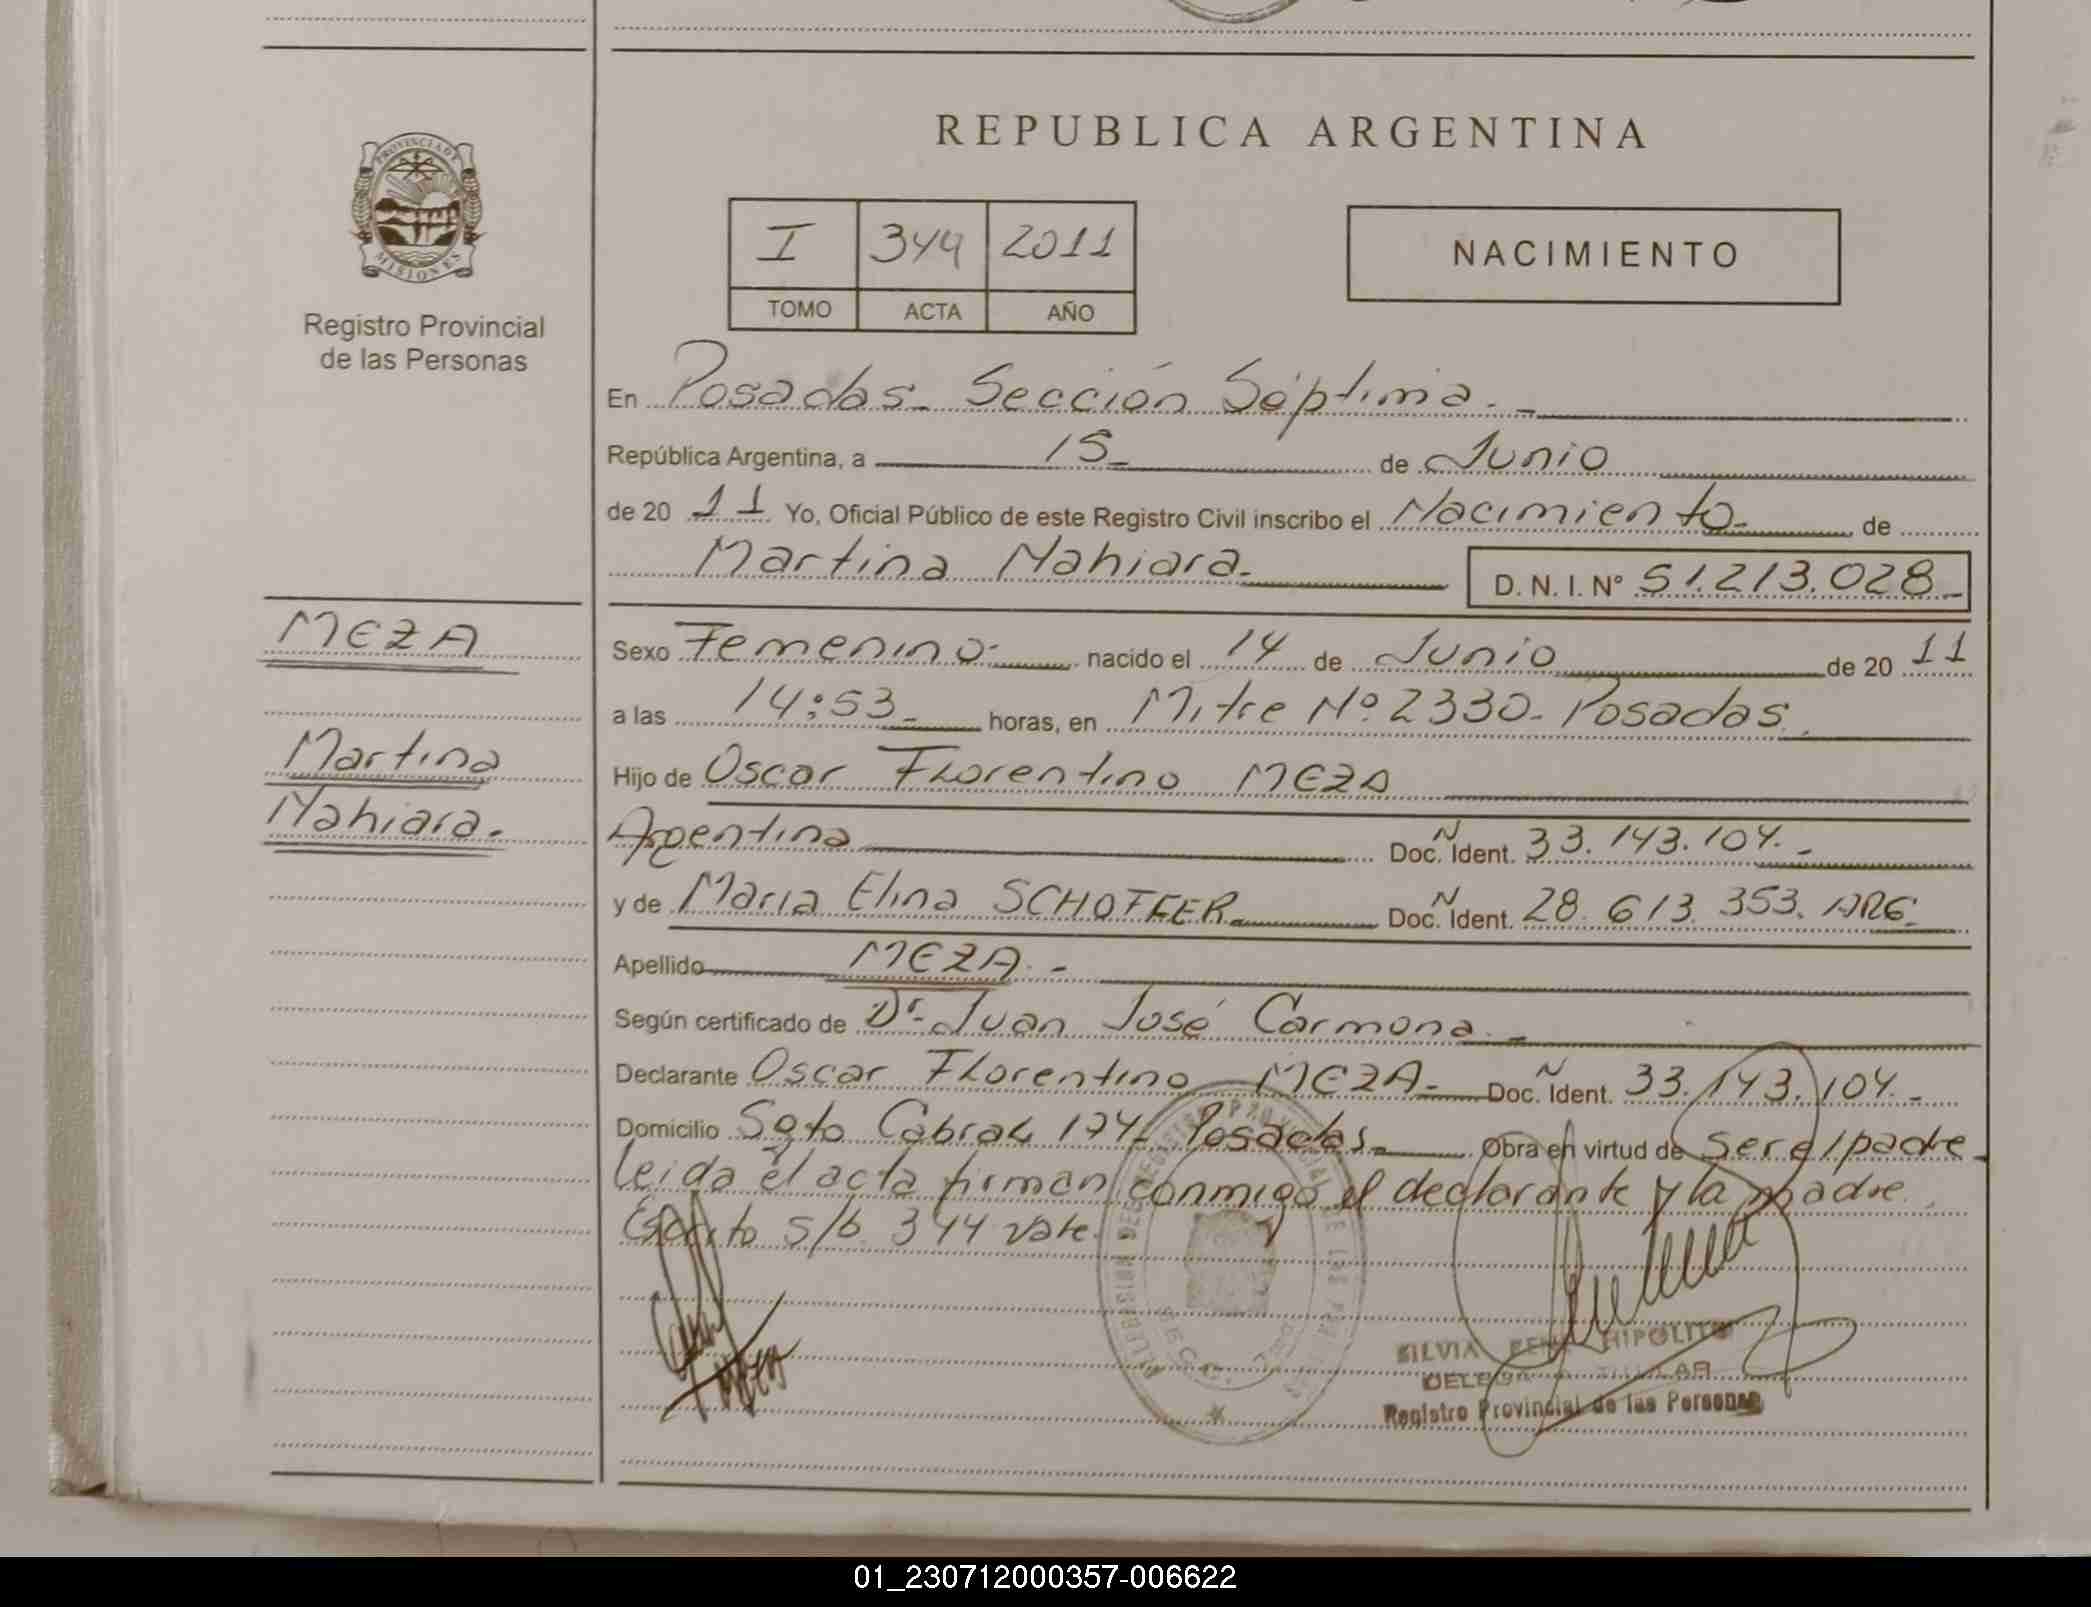 PROVINCIA DE
MISIONES
Registro Provincial
de las Personas
REPUBLICA ARGENTINA
I 344 2011
TOMO ACTA AÑO
NACIMIENTO
En Posadas - Sección Séptima. -
República Argentina, a 15 - de Junio
de 20 11 Yo, Oficial Público de este Registro Civil inscribo el Nacimiento - de
Martina Nahiara - D. N. I. Nº 51.213.028 -
MEZA
Sexo Femenino - nacido el 14 de Junio de 20 11
a las 14:53 - horas, en Mitre Nº 2330 - Posadas
Martina
Hijo de Oscar Florentino MEZA
Nahiara.
Argentina Doc. Ident. 33.143.104. -
y de Maria Elina SCHOFFER - Doc. Ident. 28.613.353. ARG.
Apellido MEZA. -
Según certificado de Dr. Juan José Carmona. -
Declarante Oscar Florentino MEZA - Doc. Ident. 33.143.104. -
Domicilio Sgto Cabral 174 - Posadas. - Obra en virtud de ser el padre -
leida el acta firman conmigo el declarante y la madre.
Escrito s/b 344 vale.
SILVIA HIPOLITO
TITULAR
Registro Provincial de las Personas
01_230712000357-006622